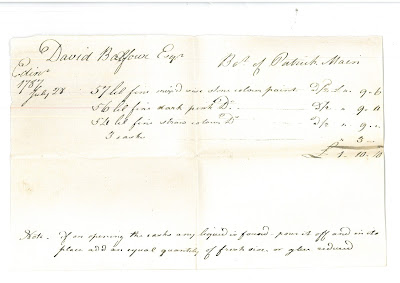 David Balfour Esqr Bot of Patrick Main
Edinr
1787
July 28 57 lib fine mix'd size stone colour paint 2/2 £ " 9-6
56 lib fine dark Do 2/2 " 9-4
54 lib fine straw colour Do 2/2 " 9
3 casks " 3
£ 1-10-10
Note. If on opening the casks any liquid is found pour it off and in its
place add an equal quantity of fresh size or glue reduced